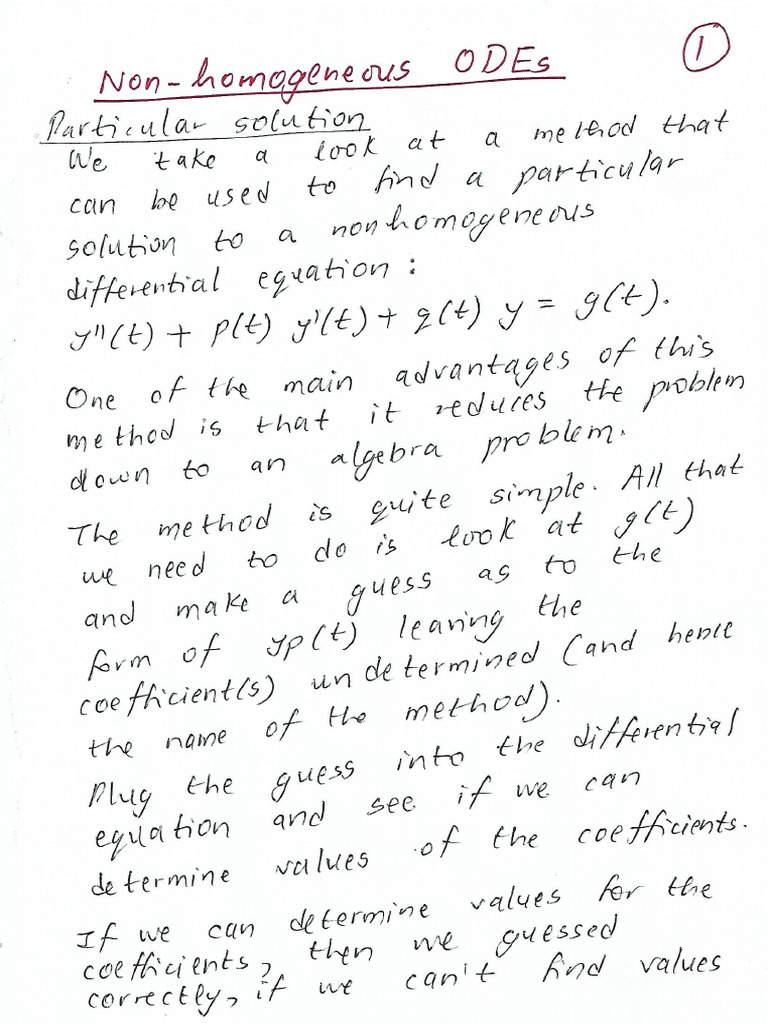 Non-homogeneous ODEs
1
Particular solution
We take a look at a method that
can be used to find a particular
solution to a nonhomogeneous
differential equation:
y''(t) + p(t) y'(t) + q(t) y = g(t).
One of the main advantages of this
method is that it reduces the problem
down to an algebra problem.
The method is quite simple. All that
we need to do is look at g(t)
and make a guess as to the
form of yp(t) leaving the
coefficient(s) undetermined (and hence
the name of the method).
Plug the guess into the differential
equation and see if we can
determine values of the coefficients.
If we can determine values for the
coefficients, then we guessed
correctly, if we can't find values